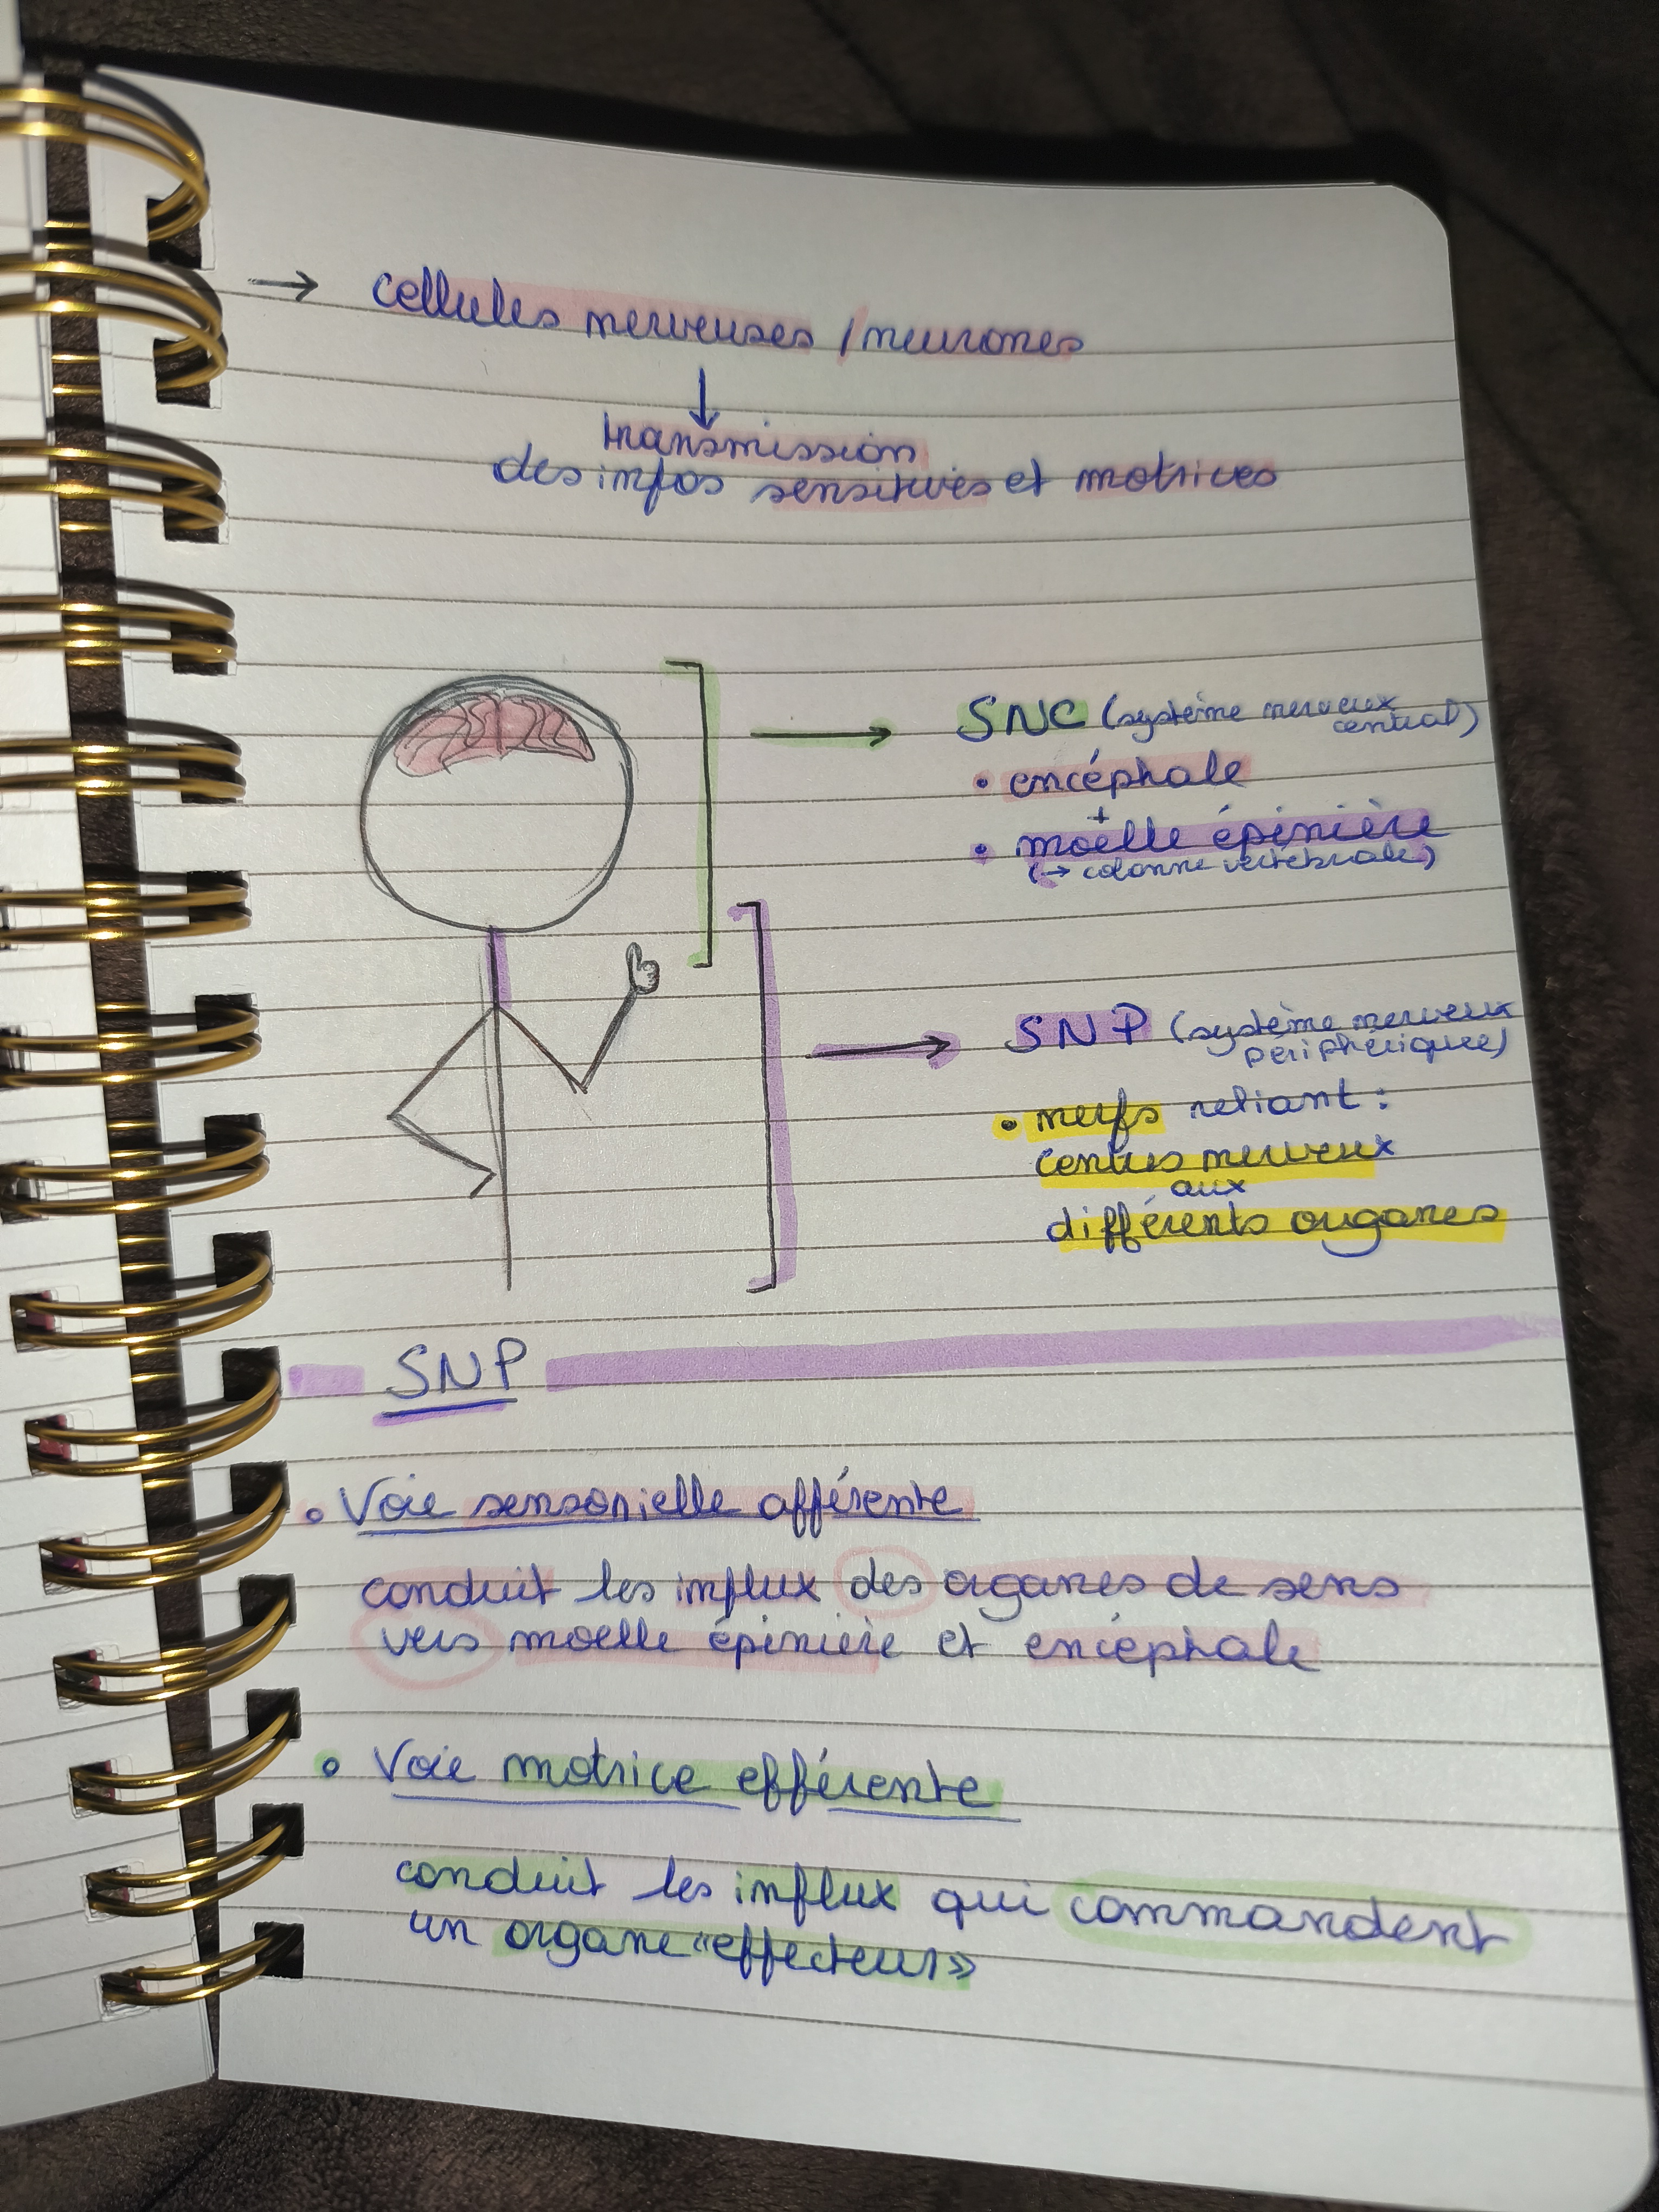 → cellules nerveuses / neurones
↓
transmission
des infos sensitives et motrices
→ SNC (système nerveux
central)
• encéphale
+
• moëlle épinière
(→ colonne vertébrale)
→ SNP (système nerveux
périphérique)
• nerfs reliant :
centres nerveux
aux
différents organes
SNP
• Voie sensorielle afférente
conduit les influx des organes de sens
vers moelle épinière et encéphale
• Voie motrice efférente
conduit les influx qui commandent
un organe "effecteur»